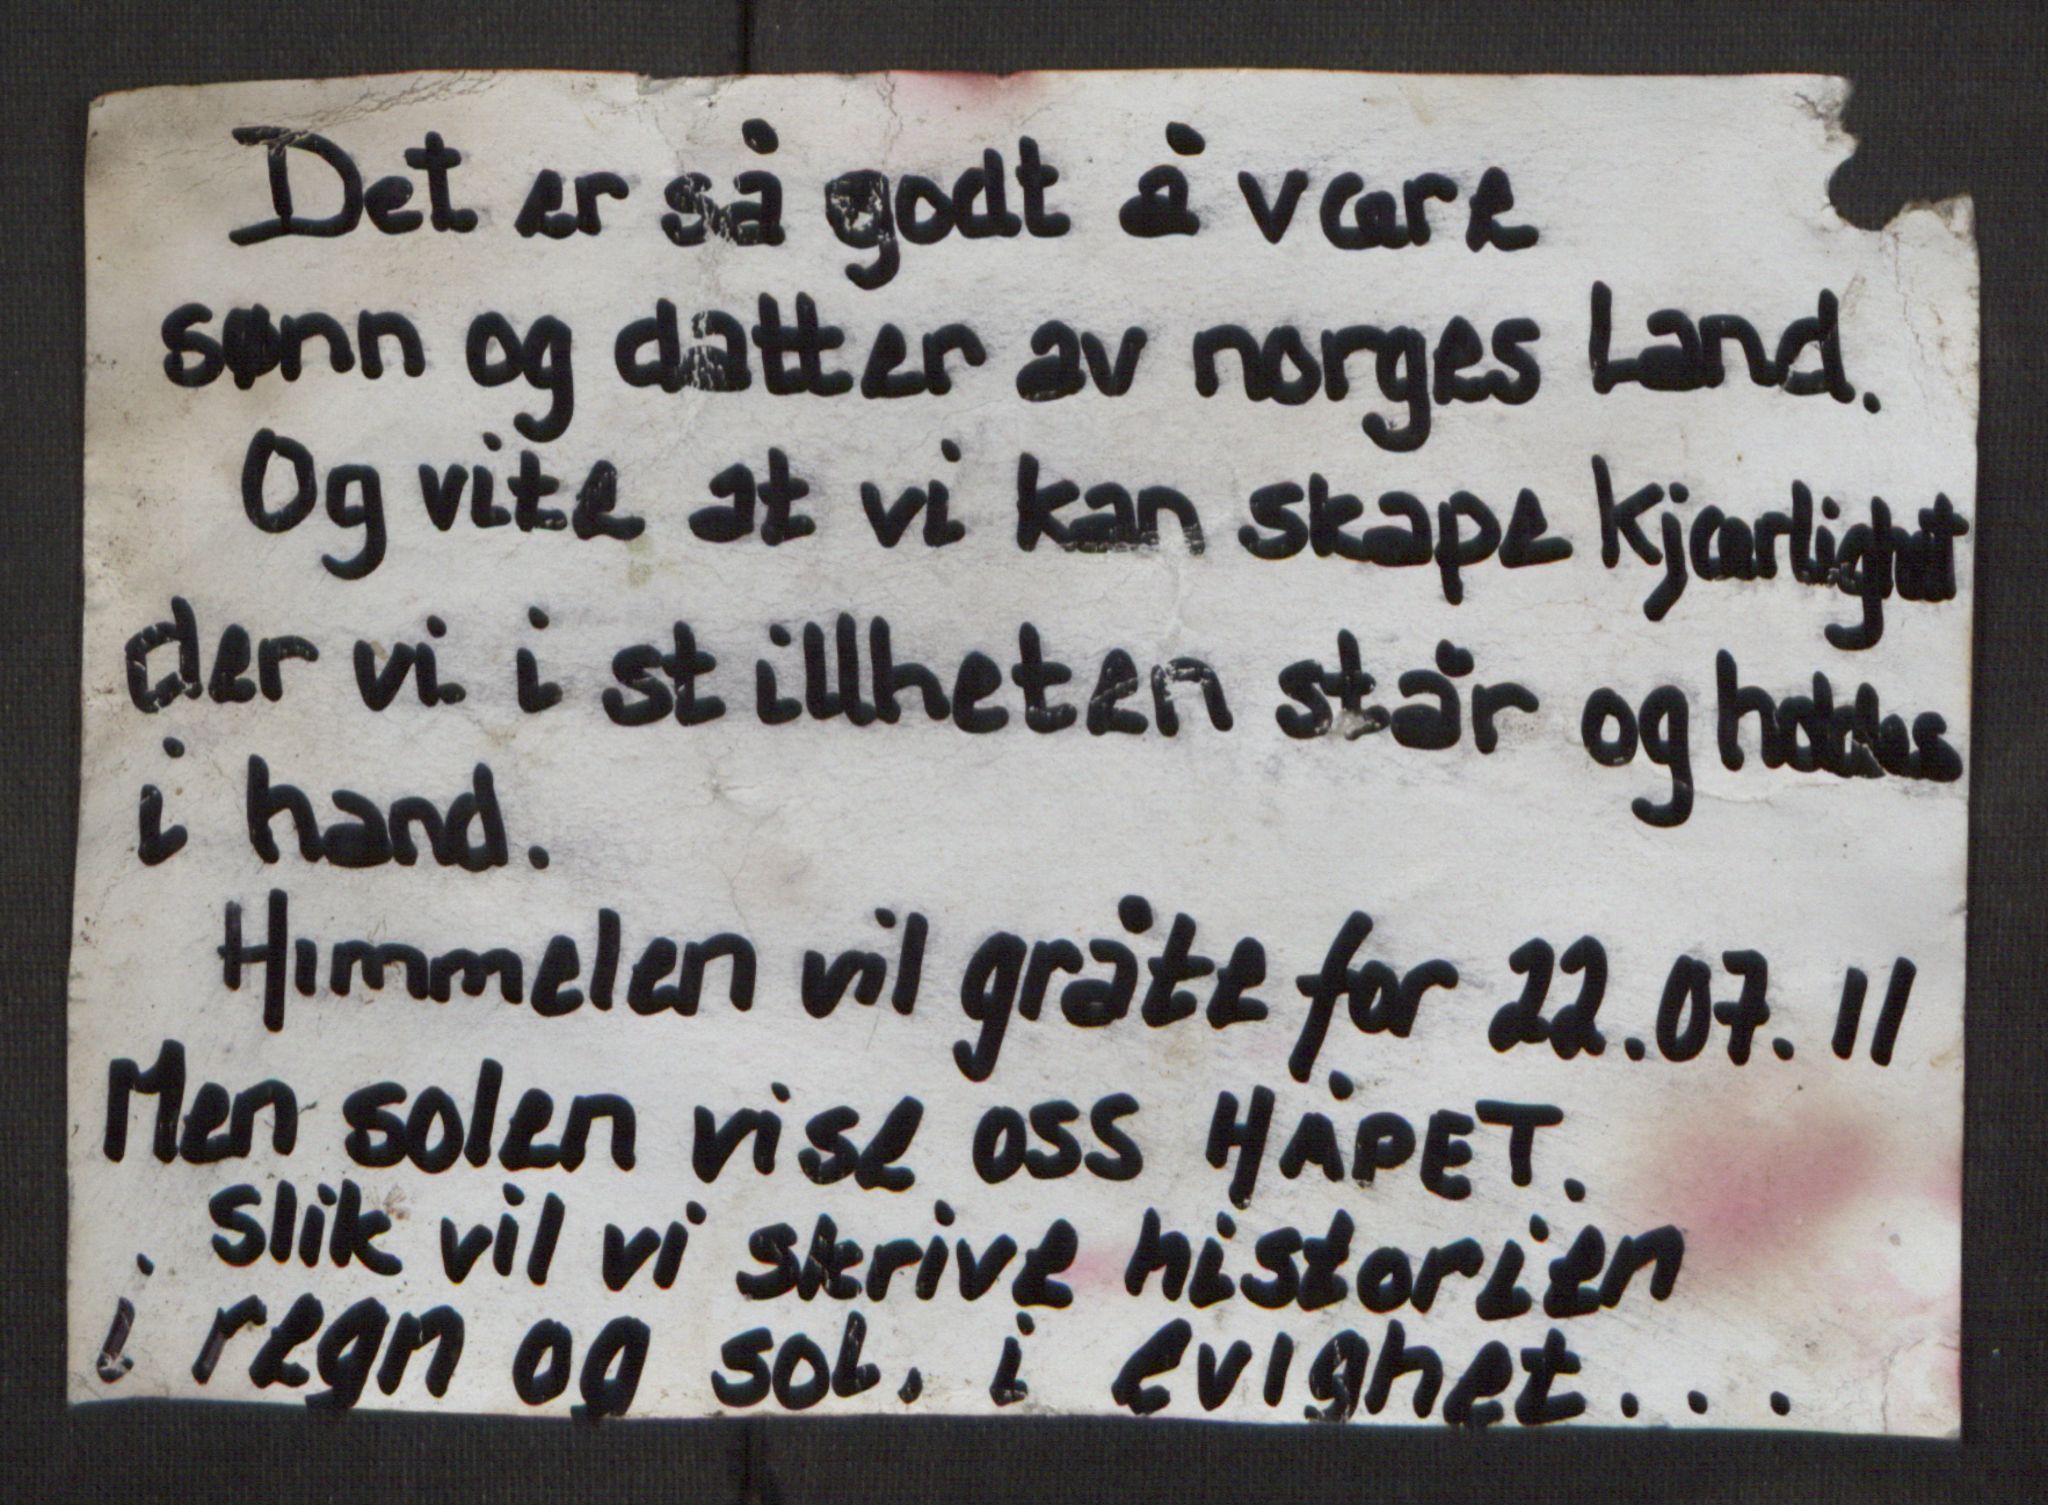 Det er så godt å være
sønn og datter av norges Land.
Og vite at vi kan skape kjærlighet
der vi i stillheten står og holdes
i hand.
Himmelen vil gråte for 22.07.11
Men solen vise oss HÅPET.
Slik vil vi skrive historien
i regn og sol. i evighet...